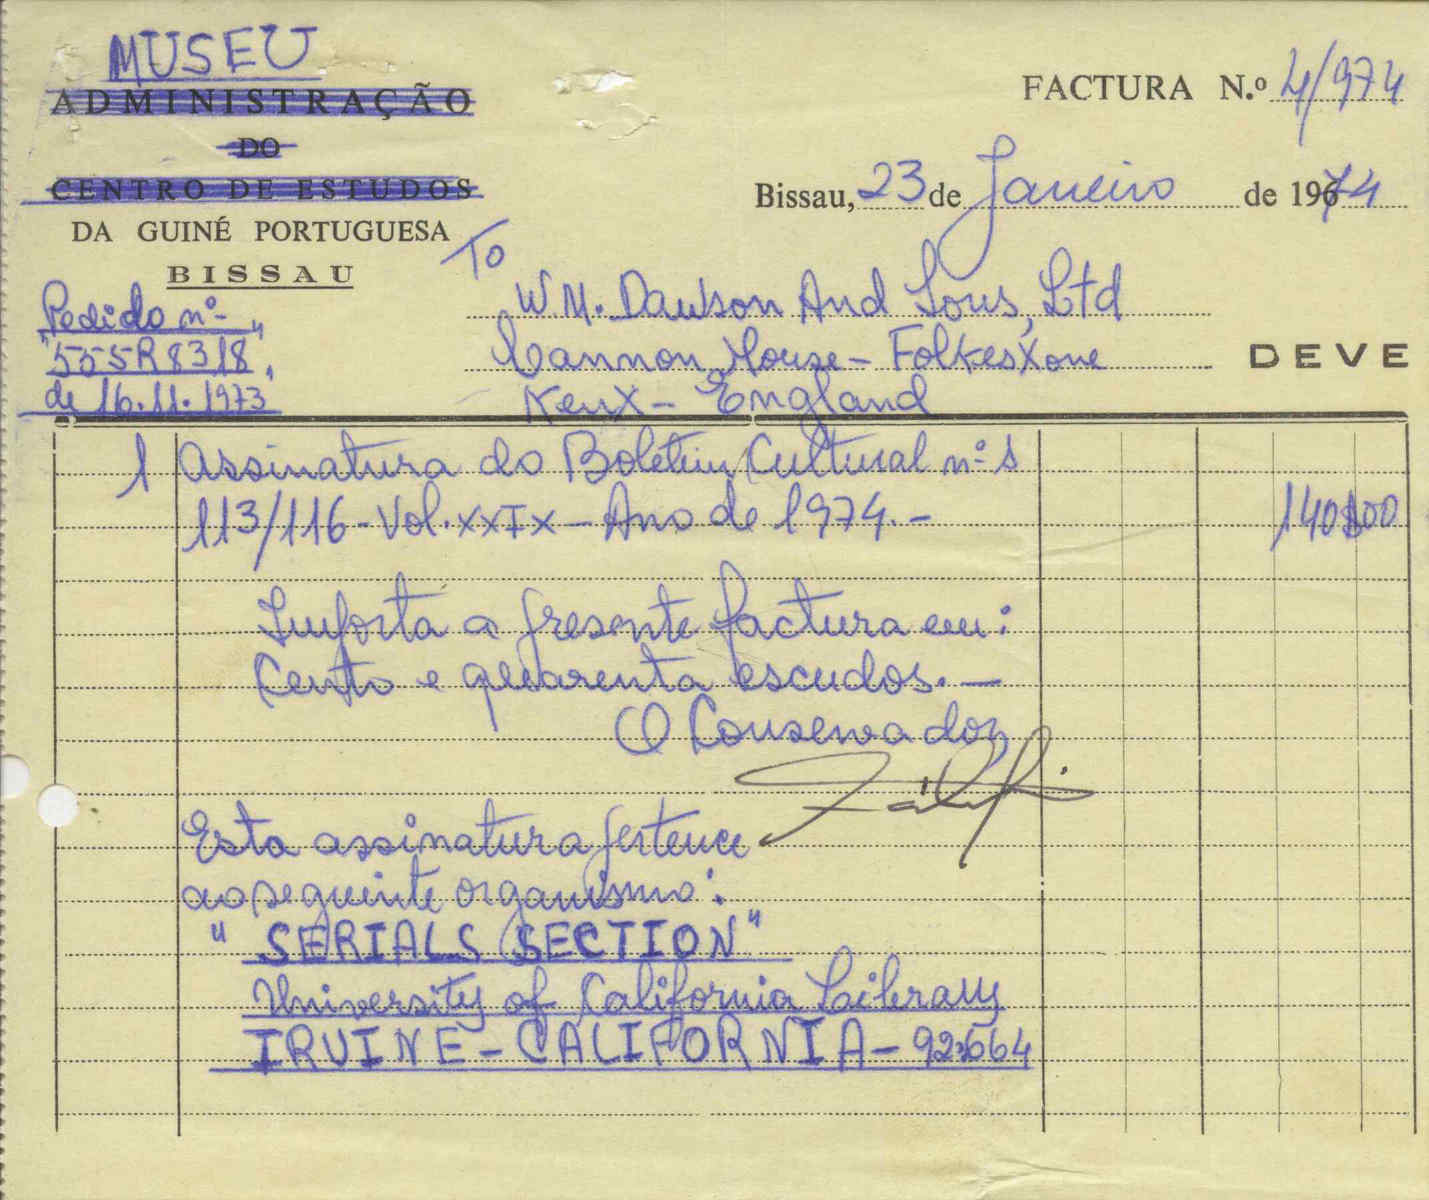 MUSEU
ADMINISTRAÇÃO
DO
CENTRO DE ESTUDOS
DA GUINÉ PORTUGUESA
BISSAU
FACTURA N.º 4/974
Bissau, 23 de Janeiro de 1974
To
W.M. Dawson And Sons, Ltd
Cannon House - Folkestone
Kent - England
DEVE
Pedido nº
"555R8318",
de 16.11.1973
1 Assinatura do Boletim Cultural nº s
113/116 - Vol. XXIX - Ano de 1974. -
140$00
Importa a presente factura em:
Cento e quarenta escudos. -
O Conservador,
Esta assinatura pertence
ao seguinte organismo:
"SERIALS SECTION"
University of California Library
IRVINE - CALIFORNIA - 92.664